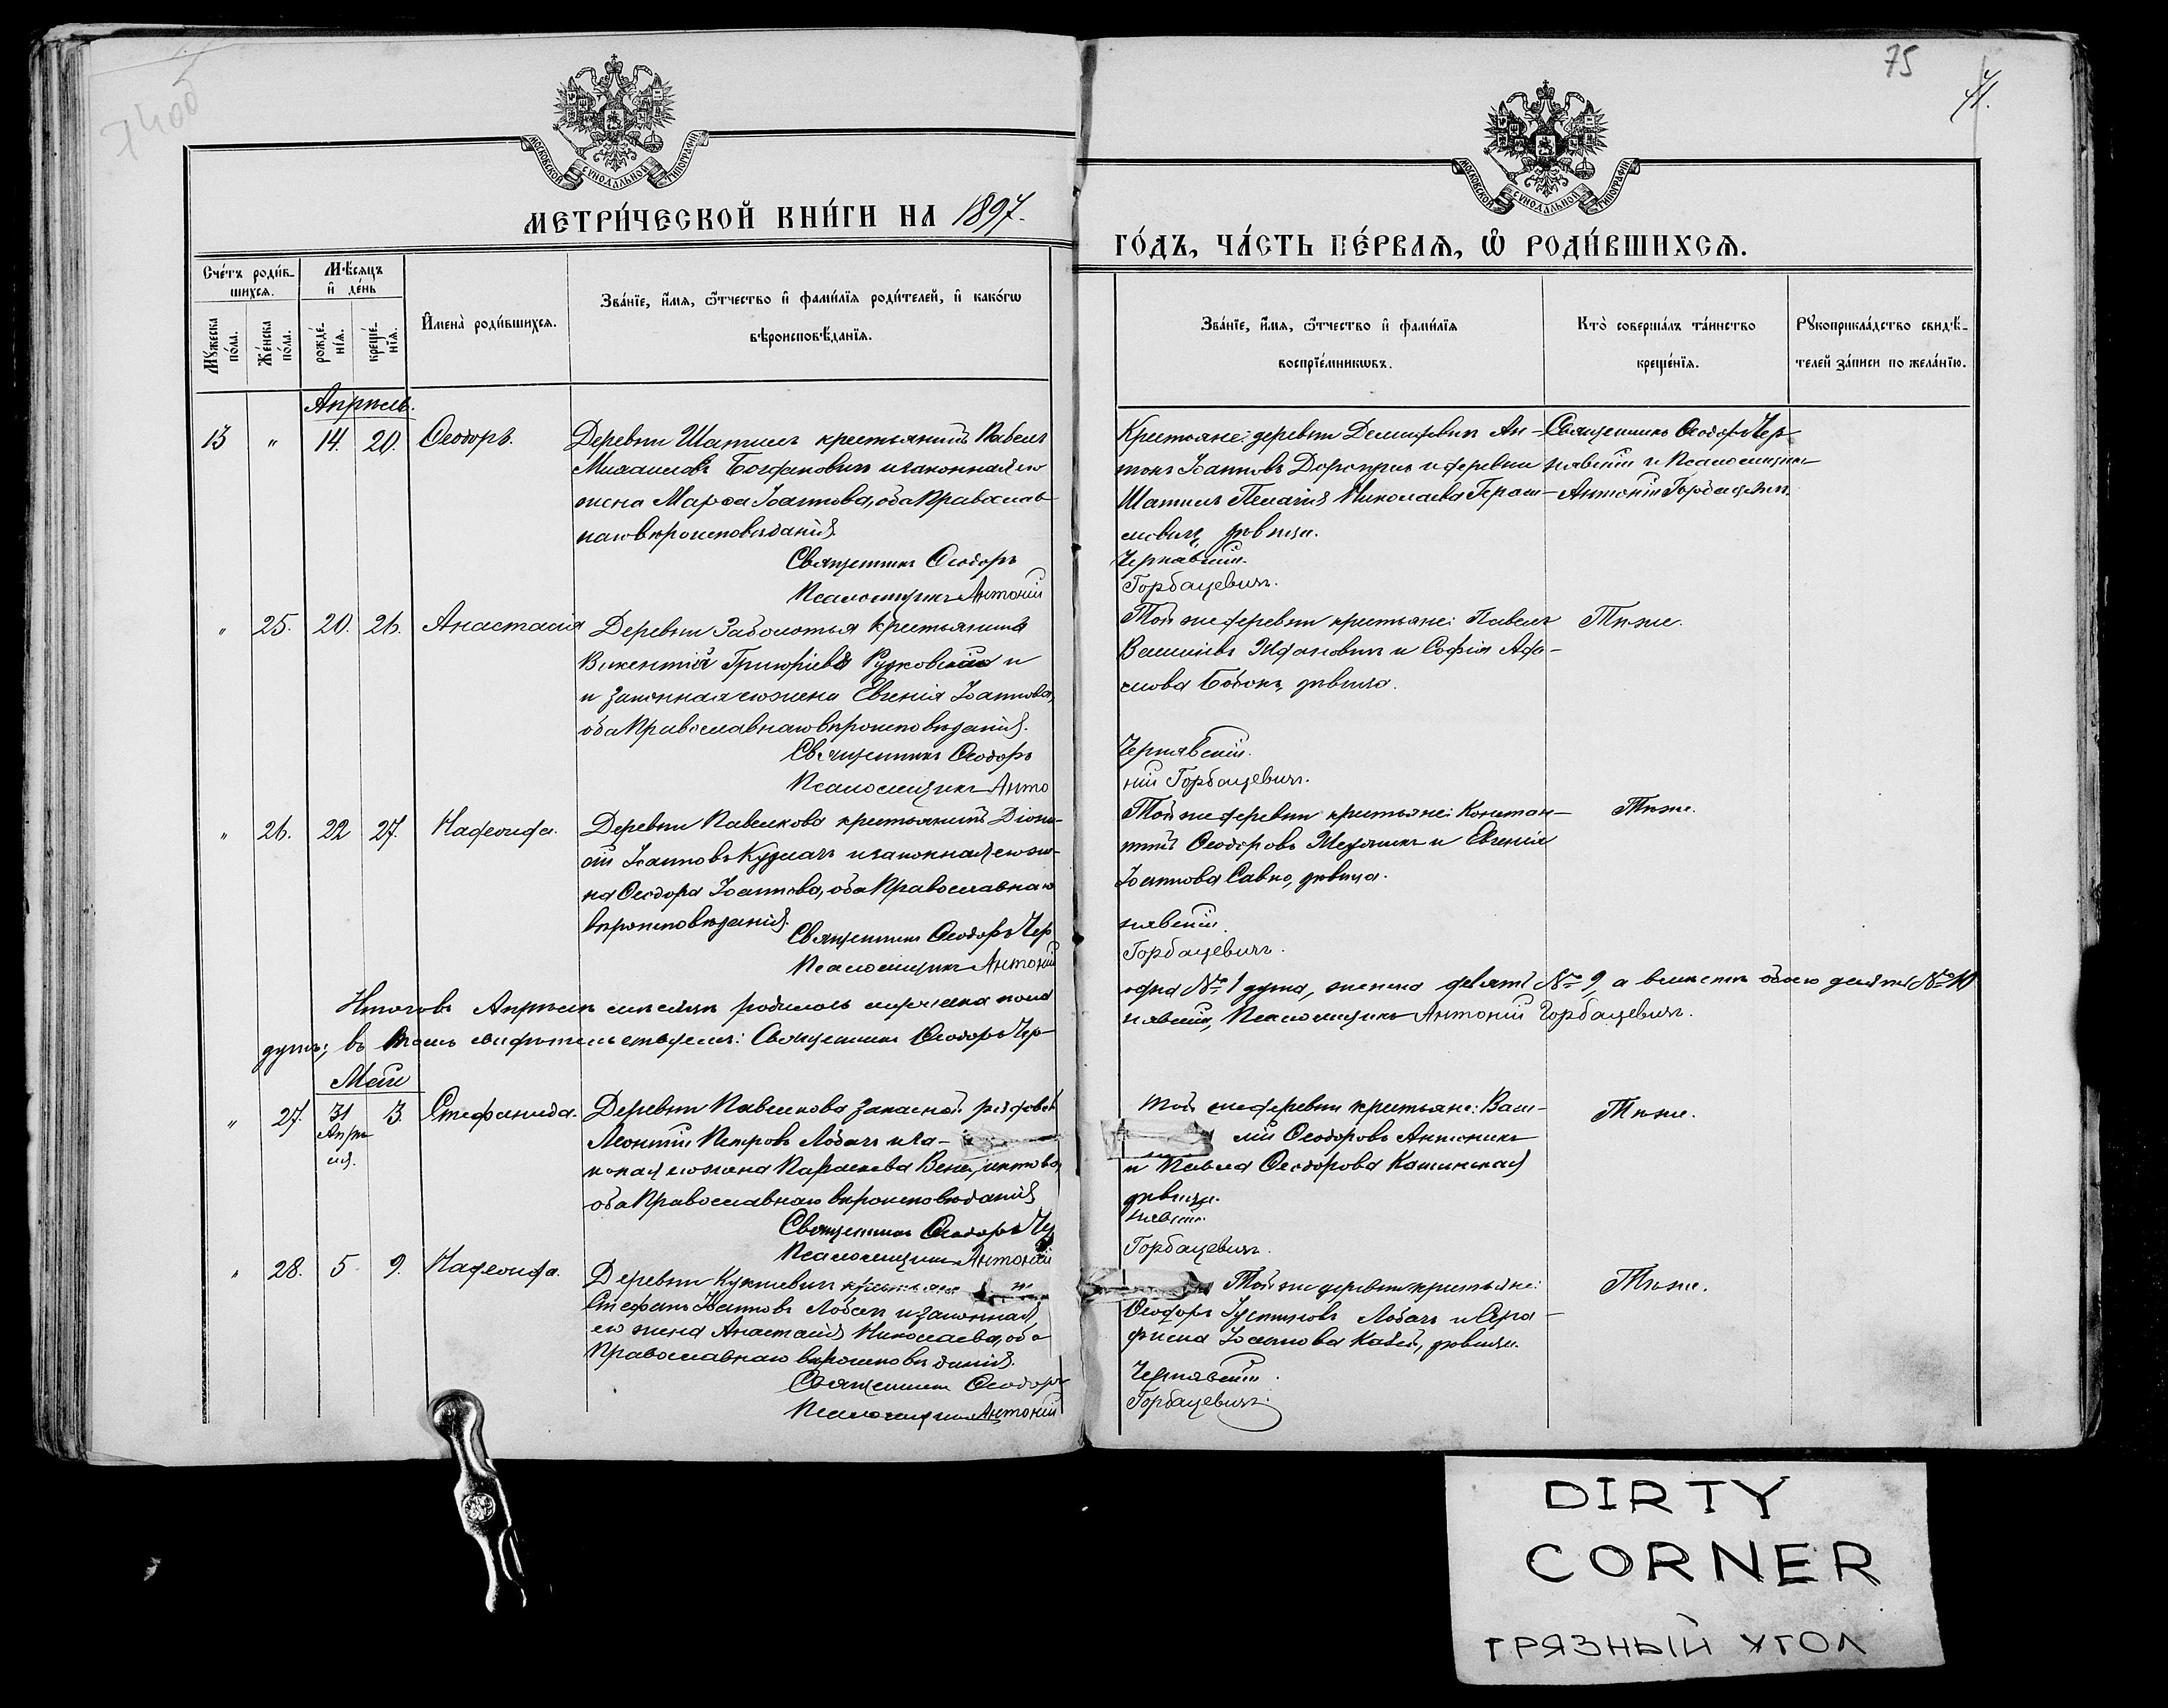 75
41.
МОСКОВСКОЙ СѴНОДАЛЬНОЙ ТИПОГРАФІИ
МОСКОВСКОЙ СѴНОДАЛЬНОЙ ТИПОГРАФІИ
МЕТРИ́ЧЕСКОЙ КНИ́ГИ НА 1897.
ГО́ДЪ, ЧА́СТЬ ПЕ́РВАѦ, Ѿ РОДИ́ВШИХСѦ.
Сче́тъ роди́в-
шихсѧ.
Мѣ́сѧцъ
и҆ де́нь
Мꙋ́жеска
по́ла.
Же́нска
по́ла.
рожде́-
нїѧ.
креще́-
нїѧ.
И҆мена̀ роди́вшихсѧ.
Зва́нїе, и҆́мѧ, ѻ҆́тчество и҆ фами́лїѧ роди́телей, и҆ како́гѡ
вѣроисповѣ́данїѧ.
Зва́нїе, и҆́мѧ, ѻ҆́тчество и҆ фами́лїѧ
воспрїе́мникѡвъ.
Кто̀ соверша́лъ та́инство
креще́нїѧ.
Рꙋкоприкла́дство свидѣ́-
телей за́писи по жела́нїю.
Апрѣль.
13 " 14. 20. Ѳеодоръ.
Деревни Шатилъ крестьянинъ Павелъ
Михаиловъ Богдановичъ и законная его
жена Марѳа Іоаннова, оба Православ-
наго вѣроисповѣданія.
Священникъ Ѳеодоръ
Псаломщикъ Антоній
Крестьяне: деревни Ан-
тонъ Іоанновъ и деревни
Шатилъ Пелагія Николаева Гераси-
мовичъ, дѣвица.
Чернявскій.
Горбацевичъ.
Священникъ Ѳеодоръ Чер-
нявскій и Псаломщикъ
Антоній Горбацевичъ.
" 25. 20. 26. Анастасія
Деревни Заболотья крестьянинъ
Викентій Григоріевъ Рудковскій и
и законная его жена Евгенія Іоаннова,
оба Православнаго вѣроисповѣданія.
Священникъ Ѳеодоръ
Псаломщикъ Анто
Той же деревни крестьяне: Павелъ
Василіевъ Ждановичъ и Софія Ада-
мова Бобокъ, дѣвица.
Чернявскій.
ній Горбацевичъ.
Тѣже.
" 26. 22 27. Нафеоида.
Деревни Павликова крестьянинъ Діони-
сій Іоанновъ Кузмачъ и законная его же-
на Ѳеодора Іоаннова, оба Православнаго
вѣроисповѣданія.
Священникъ Ѳеодоръ Чер
Псаломщикъ Антоній
Той же деревни крестьяне: Констан-
тинъ Ѳеодоровъ и Евгенія
Іоаннова Савко, дѣвица.
нявскій.
Горбацевичъ.
Тѣже.
Итого въ Апрѣлѣ мѣсяцѣ родилось мужеска пола
одна № 1 душа, женска девять № 9, а вмѣстѣ обоего десять № 10
душъ; въ томъ свидѣтельствуемъ: Священникъ Ѳеодоръ Чер-
нявскій, Псаломщикъ Антоній Горбацевичъ.
Май
" 27. 31 Апрѣ-
ля. 3. Стефанида.
Деревни Павликова запасной рядовой
Леонтій Петровъ Лобачъ и за-
конная его жена Параскева Венедиктова,
оба Православнаго вѣроисповѣданія
Священникъ Ѳеодоръ Чер
Псаломщикъ Антоній
Той же деревни крестьяне: Васи-
лій Ѳеодоровъ Антоникъ
и Павла Ѳеодорова
дѣвица.
нявскій.
Горбацевичъ.
Тѣже.
" 28. 5 9. Нафеоида.
Деревни крестьяни нъ
Стефанъ Іоанновъ Лобачъ и законная
его жена Анастасія Николаева, оба
Православнаго вѣроисповѣданія.
Священникъ Ѳеодоръ
Псаломщикъ Антоній
Той же деревни крестьяне:
Ѳеодоръ Іустиновъ Лобачъ и Сера-
фима Іоаннова дѣвица.
Чернявскій.
Горбацевичъ.
Тѣже.
DIRTY
CORNER
ГРЯЗНЫЙ УГОЛ